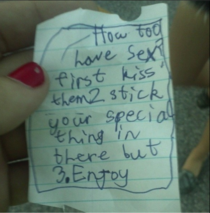 How too
have sex
first kiss
them2 stick
your special
thing in
there but
3.Enjoy